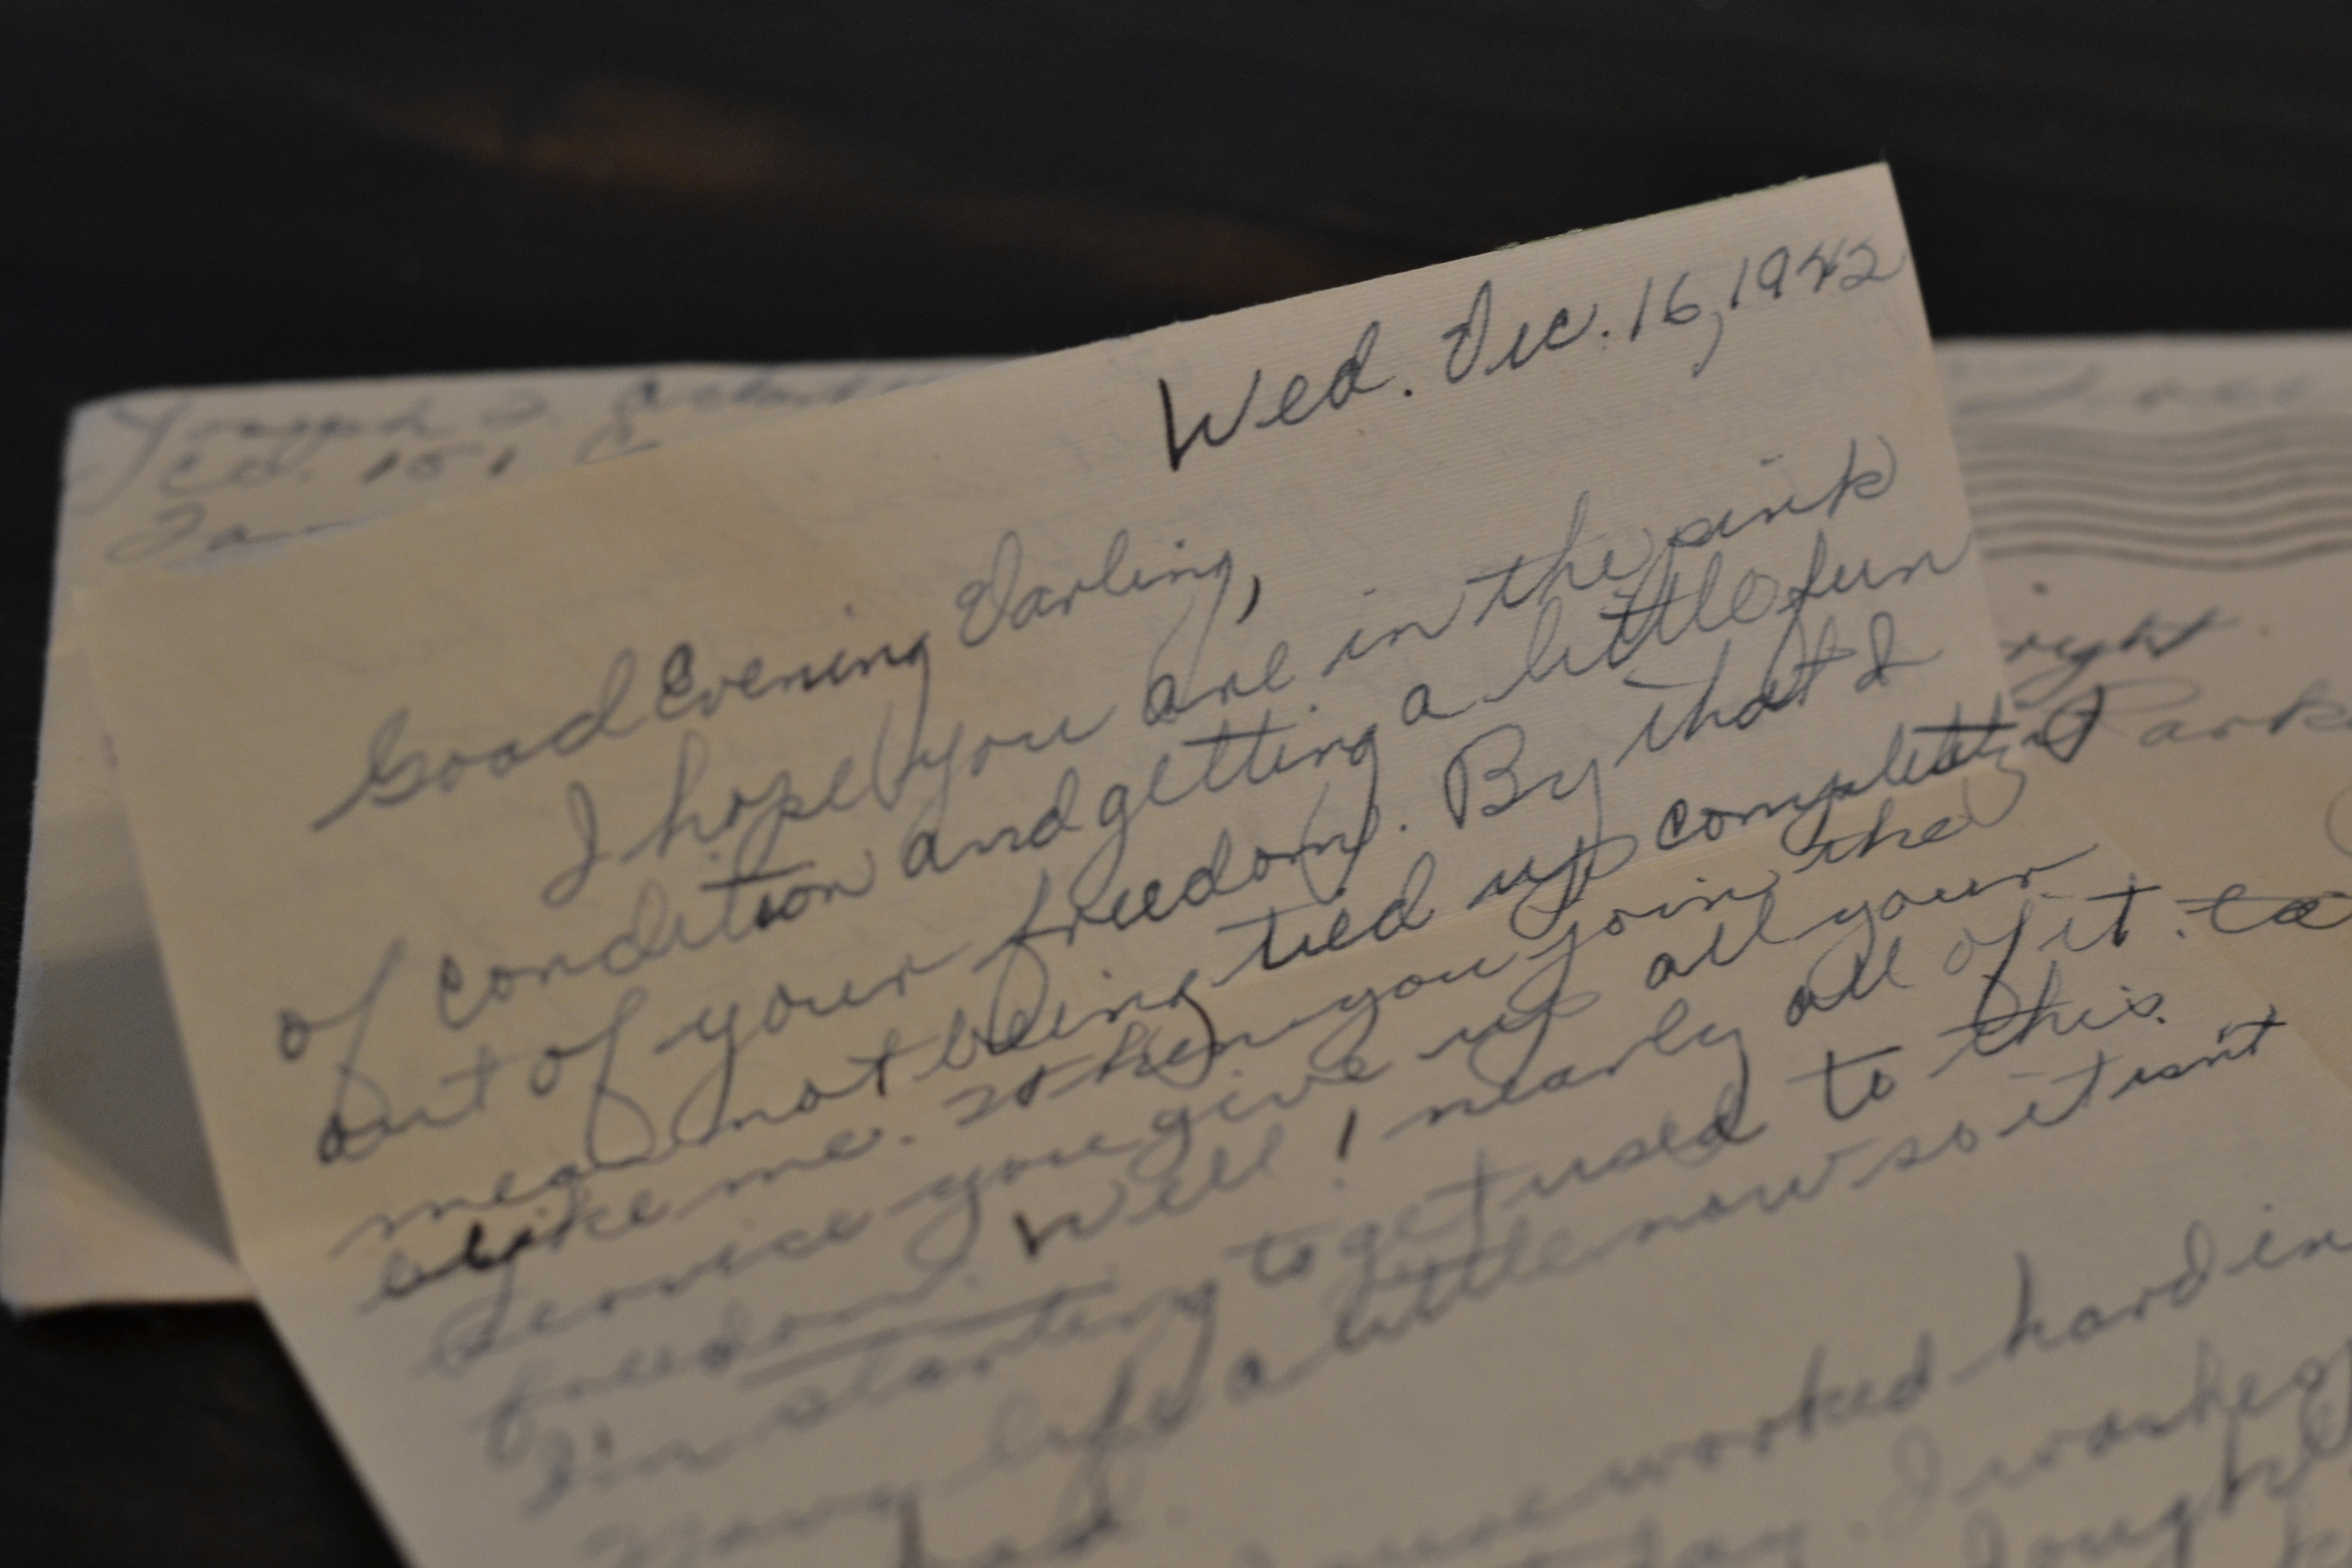 Joseph S.
Co. 151
Wed. Dec. 16, 1942
Good Evening Darling,
I hope you are in the pink
of condition and getting a little fun
out of your freedom. By that I
mean not being tied up completely
like me. when you join the
service you give up all your
freedom. Well! nearly all of it.
I'm starting to get used to this
Navy life a little now so it isn't
bad.
worked hard in
day. I washed
right
Park